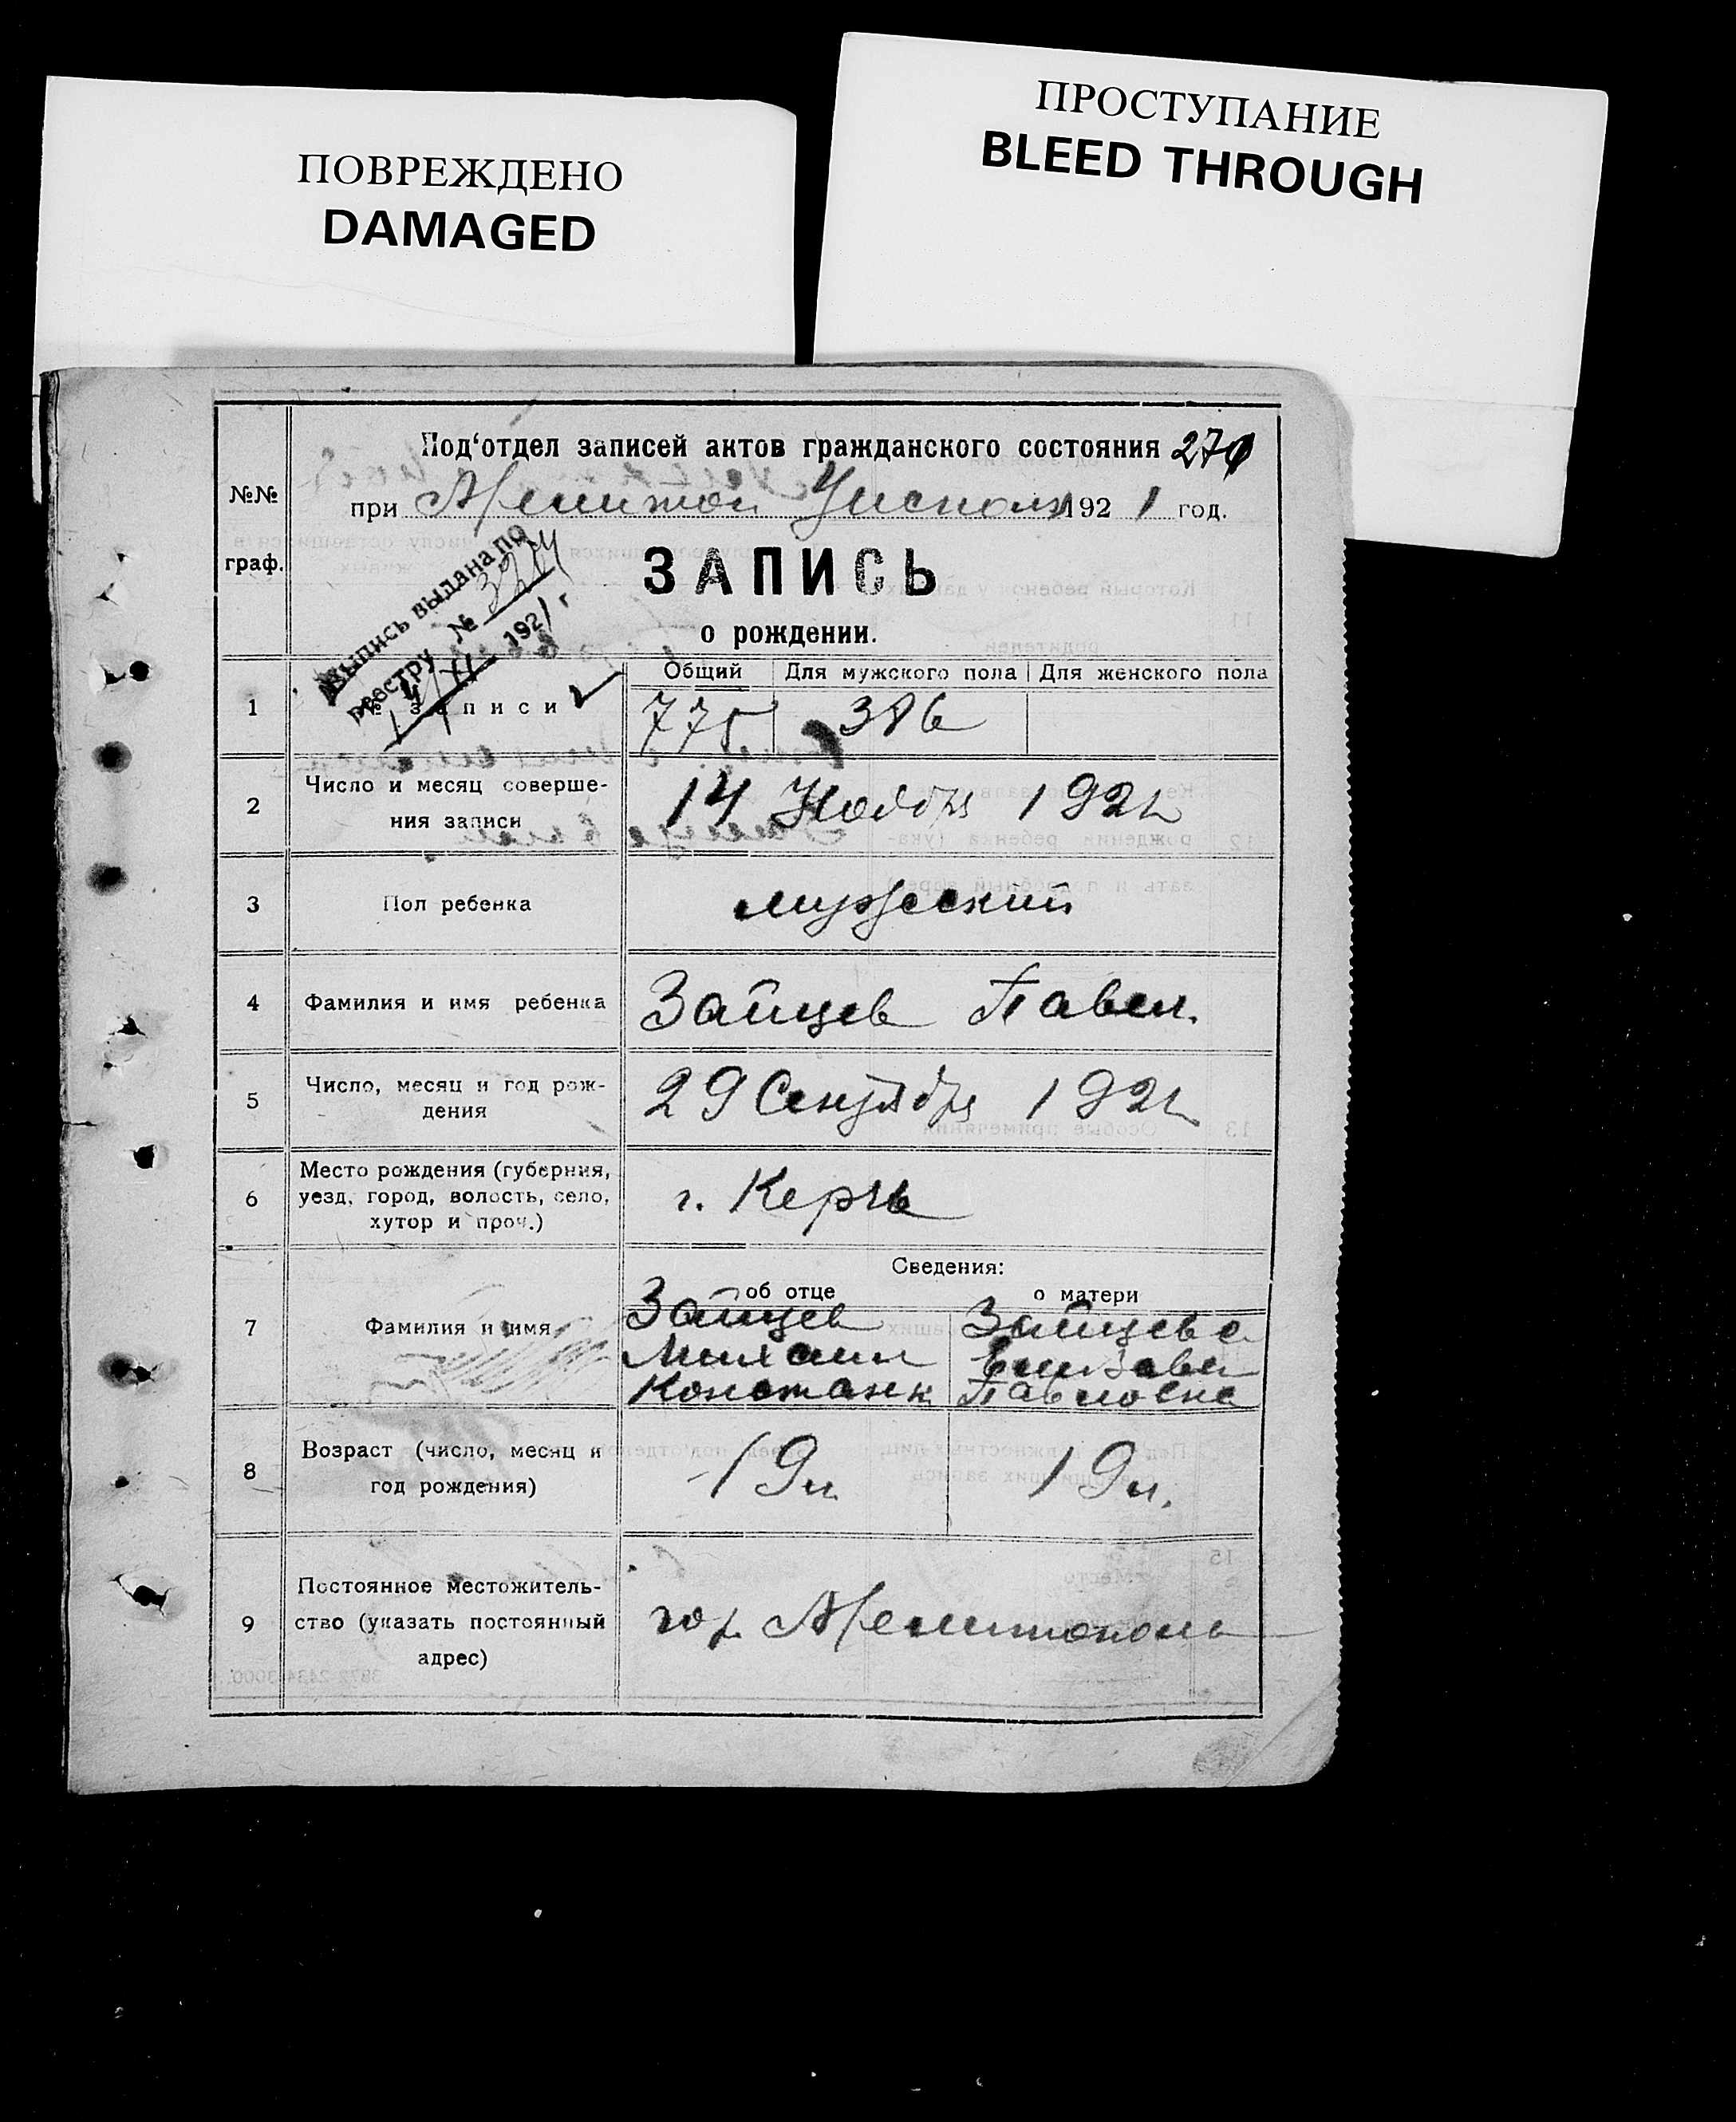 ПОВРЕЖДЕНО
DAMAGED
ПРОСТУПАНИЕ
BLEED THROUGH
Под‘отдел записей актов гражданского состояния 270
№№
граф.
при Мелитоп Уиспол 1921 год.
Выпись выдана по
реестру №
1921 г
ЗАПИСЬ
о рождении.
Общий Для мужского пола Для женского пола
1 № записи 775 386
2 Число и месяц соверше-
ния записи
14 Ноября 1921
3 Пол ребенка мужеский
4 Фамилия и имя ребенка Зайцев Павел.
5 Число, месяц и год рож-
дения
29 Сентября 1921
6 Место рождения (губерния,
уезд, город, волость, село,
хутор и проч.)
г. Керчь
Сведения:
об отце о матери
7 Фамилия и имя
Зайцев
Михаил
Констант
Зайцева
Елизавет
Павловна
8 Возраст (число, месяц и
год рождения)
19 л. 19 л.
9 Постоянное местожитель-
ство (указать постоянный
адрес)
гор. Мелитополь